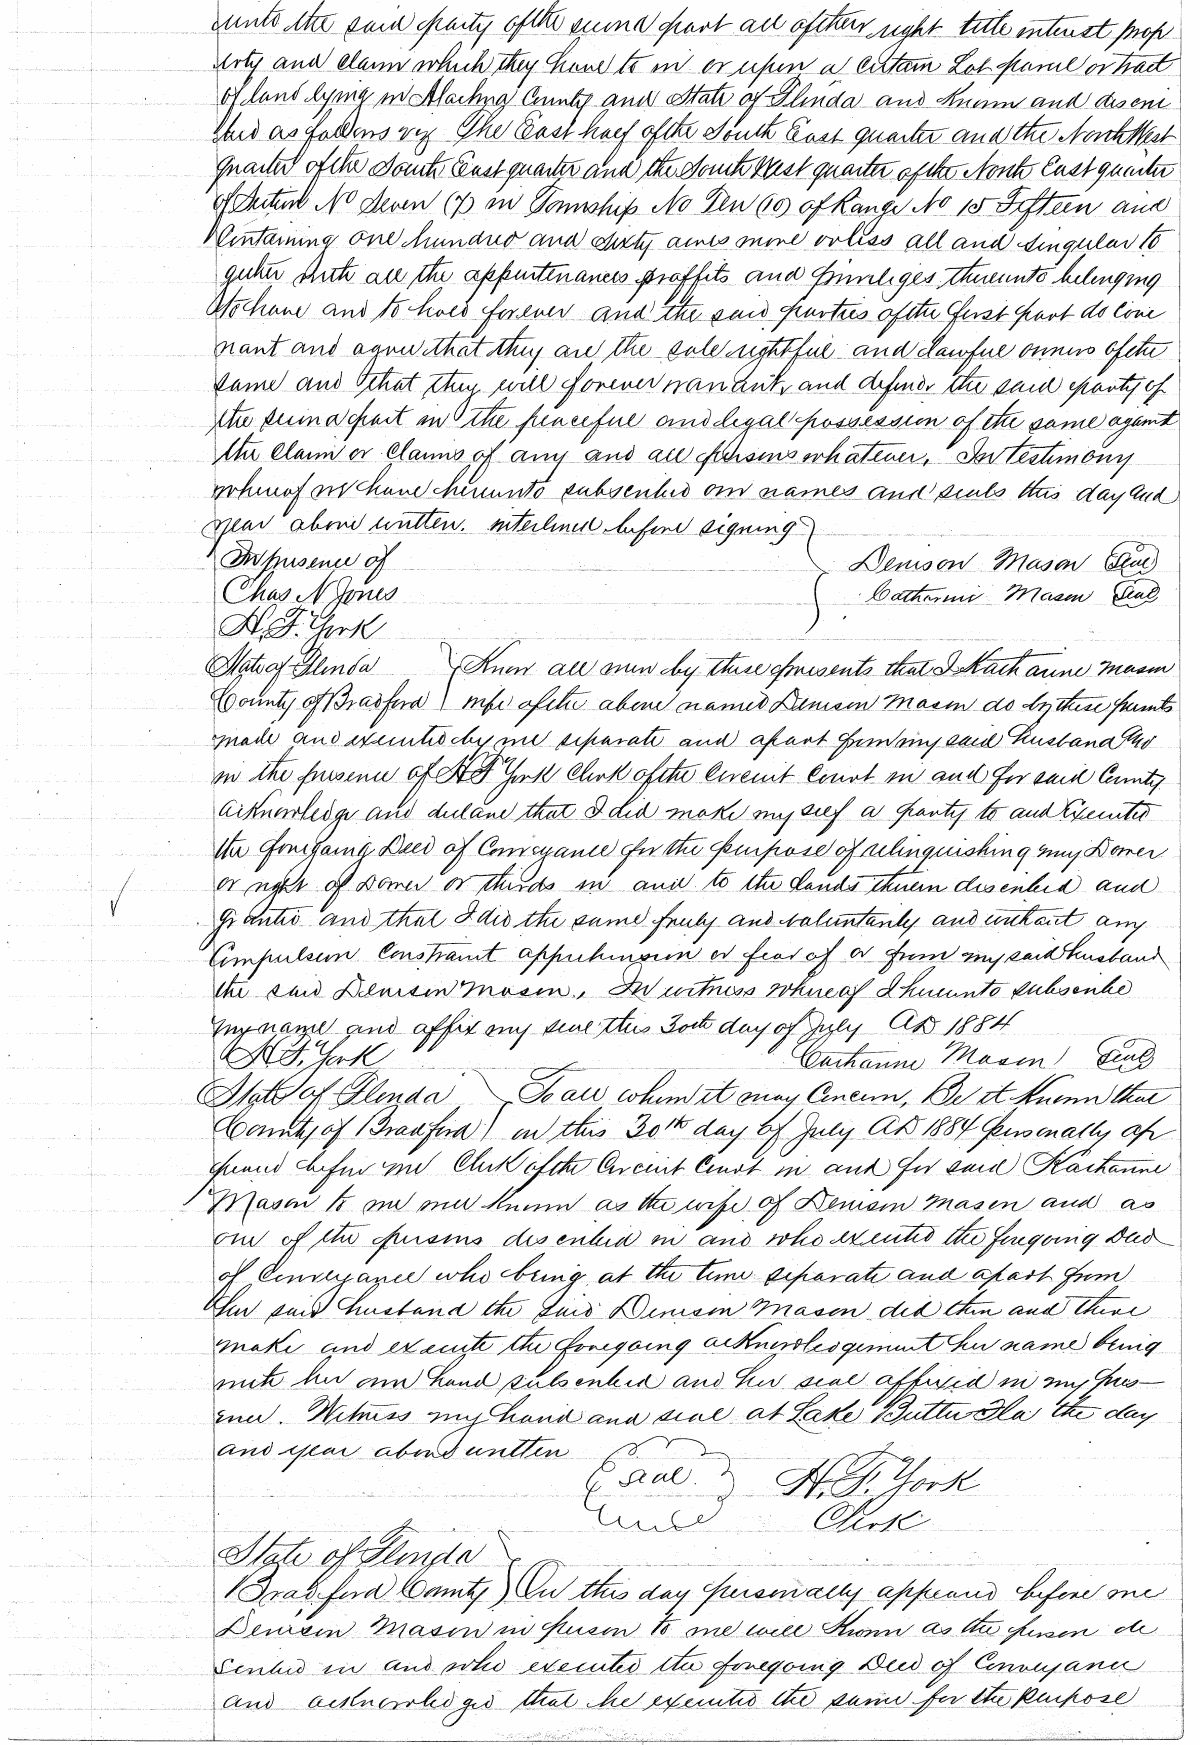 unto the said party of the second part all of their right title interest prop
erty and claim which they have to in or upon a certain Lot parcel or tract
of land lying in Alachua County and State of Florida and known and descri
bed as follows viz The East half of the South East quarter and the North West
quarter of the South East quarter and the South West quarter of the North East quarter
of Section No Seven (7) in Township No Ten (10) of Range No 15 Fifteen and
Containing one hundred and sixty acres more or less all and singular to
gether with all the appurtenances proffits and priviliges thereunto belonging
To have and to hold forever and the said parties of the first part do Cove
nant and agree that they are the sole rightful and lawful owners of the
same and that they will forever warrant and defend the said party of
the second part in the peaceful and legal possession of the same against
the Claim or Claims of any and all persons whatever. In testimony
whereof we have hereunto subscribed our names and seals this day and
year above written. interlined before signing
In presence of
Denison Mason Seal
Chas N Jones
Catharine Mason Seal
H. F. York
State of Florida Know all men by these presents that I Kathanne Mason
County of Bradford wife of the above named Denison Mason do by these presents
made and executed by me separate and apart from my said husband and
in the presence of H F York Clerk of the Circuit Court in and for said County
acknowledge and declare that I did make my self a party to and Executed
the foregoing Deed of Conveyance for the purpose of relinquishing my Dower
or right of Dower or thirds in and to the Lands therein described and
granted and that I did the same freely and voluntarily and without any
Compulsion Constraint apprehension or fear of or from my said husband
the said Denison Mason. In witness whereof I hereunto subscribe
my name and affix my seal this 30th day of July AD 1884
H F. York Cathanne Mason Seal
State of Florida To all whom it may Concern, Be it Known that
County of Bradford on this 30th day of July AD 1884 personally ap
peared before me Clerk of the Circuit Court in and for said Kathanne
Mason to me well known as the wife of Denison Mason and as
one of the persons described in and who executed the foregoing Deed
of Conveyance who being at the time separate and apart from
her said husband the said Denison Mason did then and there
make and execute the foregoing acknowledgement her name being
with her own hand subscribed and her seal affixed in my pres-
ence. Witness my hand and seal at Lake Butler Fla the day
and year above written
Seal. H. F. York
Clerk
State of Florida
Bradford County On this day personally appeared before me
Denison Mason in person to me well Known as the person de
scribed in and who executed the foregoing Deed of Conveyance
and acknowledged that he executed the same for the purpose